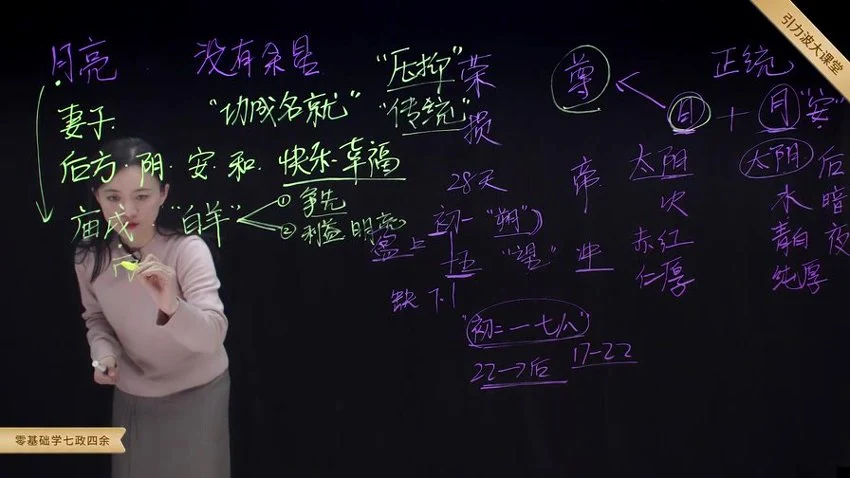 引力波大课堂
月亮 没有余星 "压抑" 荣 尊 正统
妻子 "功成名就" "传统" 损 日 + 月 "安"
后方·阴·安·和·快乐·幸福 太阳 太阴 后
28天 帝 火 水 暗
庙戌 "白羊" ① 争先 ② 利益 明亮
盈 上 初一 "朔" 赤红 青白 夜
十五 "望" 冲 仁厚 纯厚
缺 下
"初二一七八"
22→后 17-22
零基础学七政四余